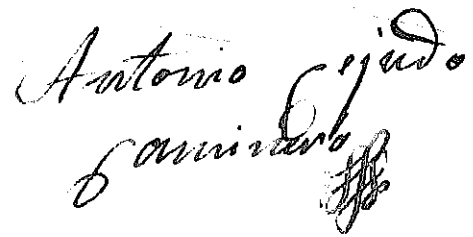 Antonio Cejudo
Caminero